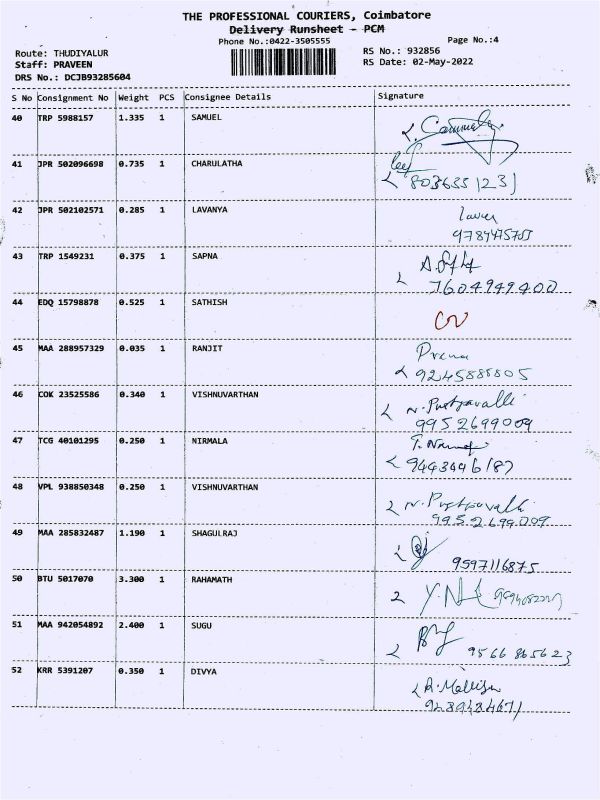 THE PROFESSIONAL COURIERS, Coimbatore
Delivery Runsheet - PCM
Phone No.:0422-3505555
Page No.:4
Route: THUDIYALUR
RS No.: 932856
Staff: PRAVEEN
RS Date: 02-May-2022
DRS No.: DCJB93285604
S No Consignment No Weight PCS Consignee Details Signature
40 TRP 5988157 1.335 1 SAMUEL
41 JPR 502096698 0.735 1 CHARULATHA
8036351231
42 JPR 502102571 0.285 1 LAVANYA
43 TRP 1549231 0.375 1 SAPNA
7604949400
44 EDQ 15798878 0.525 1 SATHISH
45 MAA 288957329 0.035 1 RANJIT
Prena
9245885805
46 COK 23525586 0.340 1 VISHNUVARTHAN
N. Pushpavalli
9952699009
47 TCG 40101295 0.250 1 NIRMALA
9443446187
48 VPL 938850348 0.250 1 VISHNUVARTHAN
N. Pushpavalli
9952699009
49 MAA 285832487 1.190 1 SHAGULRAJ
9597116875
50 BTU 5017070 3.300 1 RAHAMATH
51 MAA 942054892 2.400 1 SUGU
9566865623
52 KRR 5391207 0.350 1 DIVYA